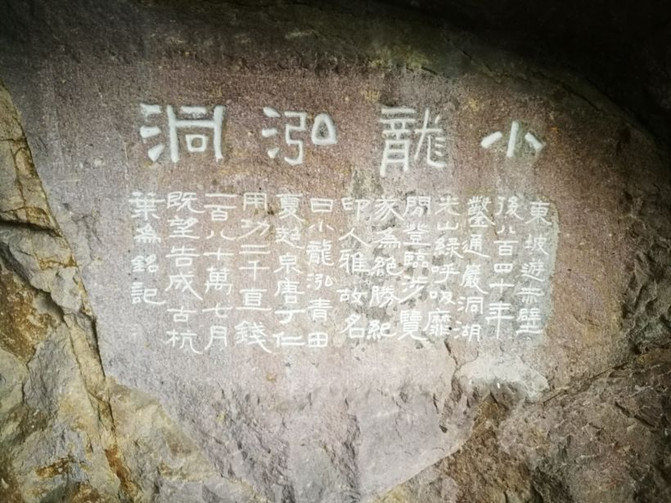 小龍泓洞
東坡遊赤壁
後八百四十年
鑿通巖洞湖
光山綠呼吸靡
閒登臨涉覽
遂爲絕勝紀
印人雅故名
曰小龍泓青田
夏超泉唐丁仁
用功二千直錢
百八十萬七月
既望告成古杭
葉爲銘記